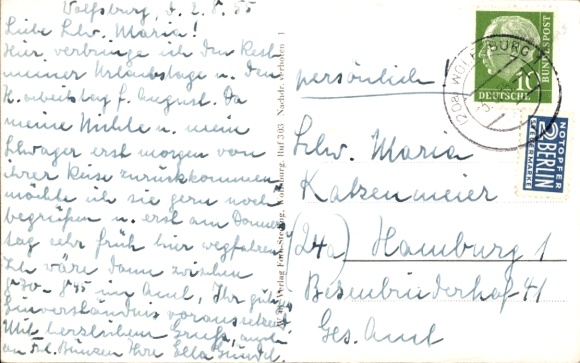 Wolfsburg, d. 2.8.55
Liebe Schw. Maria!
Hier verbringe ich den Rest
meiner Urlaubstage u. den
H. arbeitstag f. August. Da
meine Nichte u. mein
Schwager erst morgen von
ihrer Reise zurückkommen
möchte ich sie gern noch
begrüßen u. erst am Donners
tag sehr früh hier wegfahren.
Ich wäre dann zwischen
in Amt, Ihr gütiges
Einverständnis voraussetzend.
Mit herzlichem Gruß, auch
an Frl. Ihre Ella
Verlag Foto Wolfsburg, Ruf 303 Nachdr. verboten 1
persönlich!
WOLFSBURG
(20b)
10
DEUTSCHE
BUNDESPOST
NOTOPFER
2 BERLIN
STEUERMARKE
Schw. Maria
Katzenmeier
(24a) Hamburg 1
Besenbinderhof 41
Ges. Amt